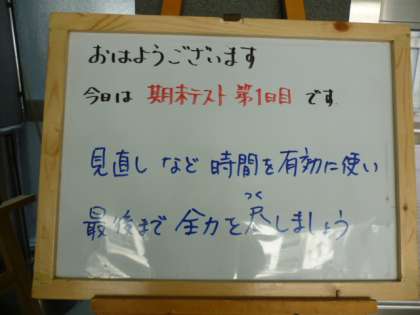 おはようございます
今日は 期末テスト 第1日目 です
見直し など 時間を有効に使い
つく
最後まで 全力を尽しましょう